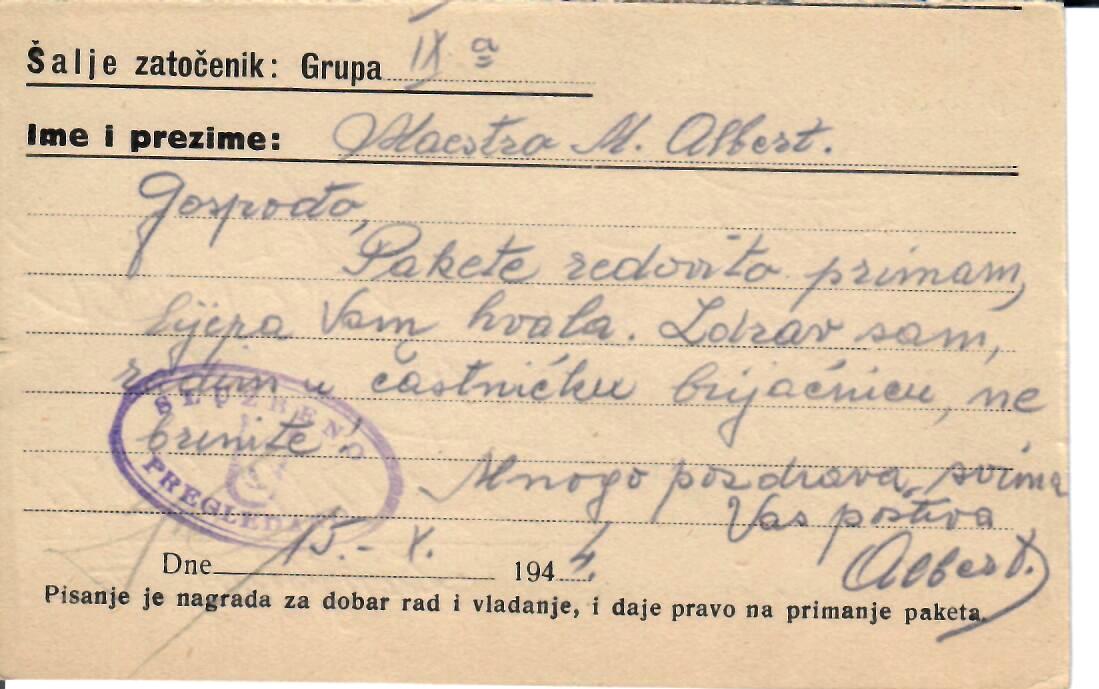 Šalje zatočenik: Grupa IX a
Ime i prezime: Maestro M. Albert.
Gospođo,
Pakete redovito primam,
lijepa Vam hvala. Zdrav sam,
radim u častničku brijačnicu, ne
brinite!
SLUŽBENO
PREGLEDANO
Mnogo pozdrava svima
Vas poštiva
Albert.
Dne 15.- X. 1944.
Pisanje je nagrada za dobar rad i vladanje, i daje pravo na primanje paketa.